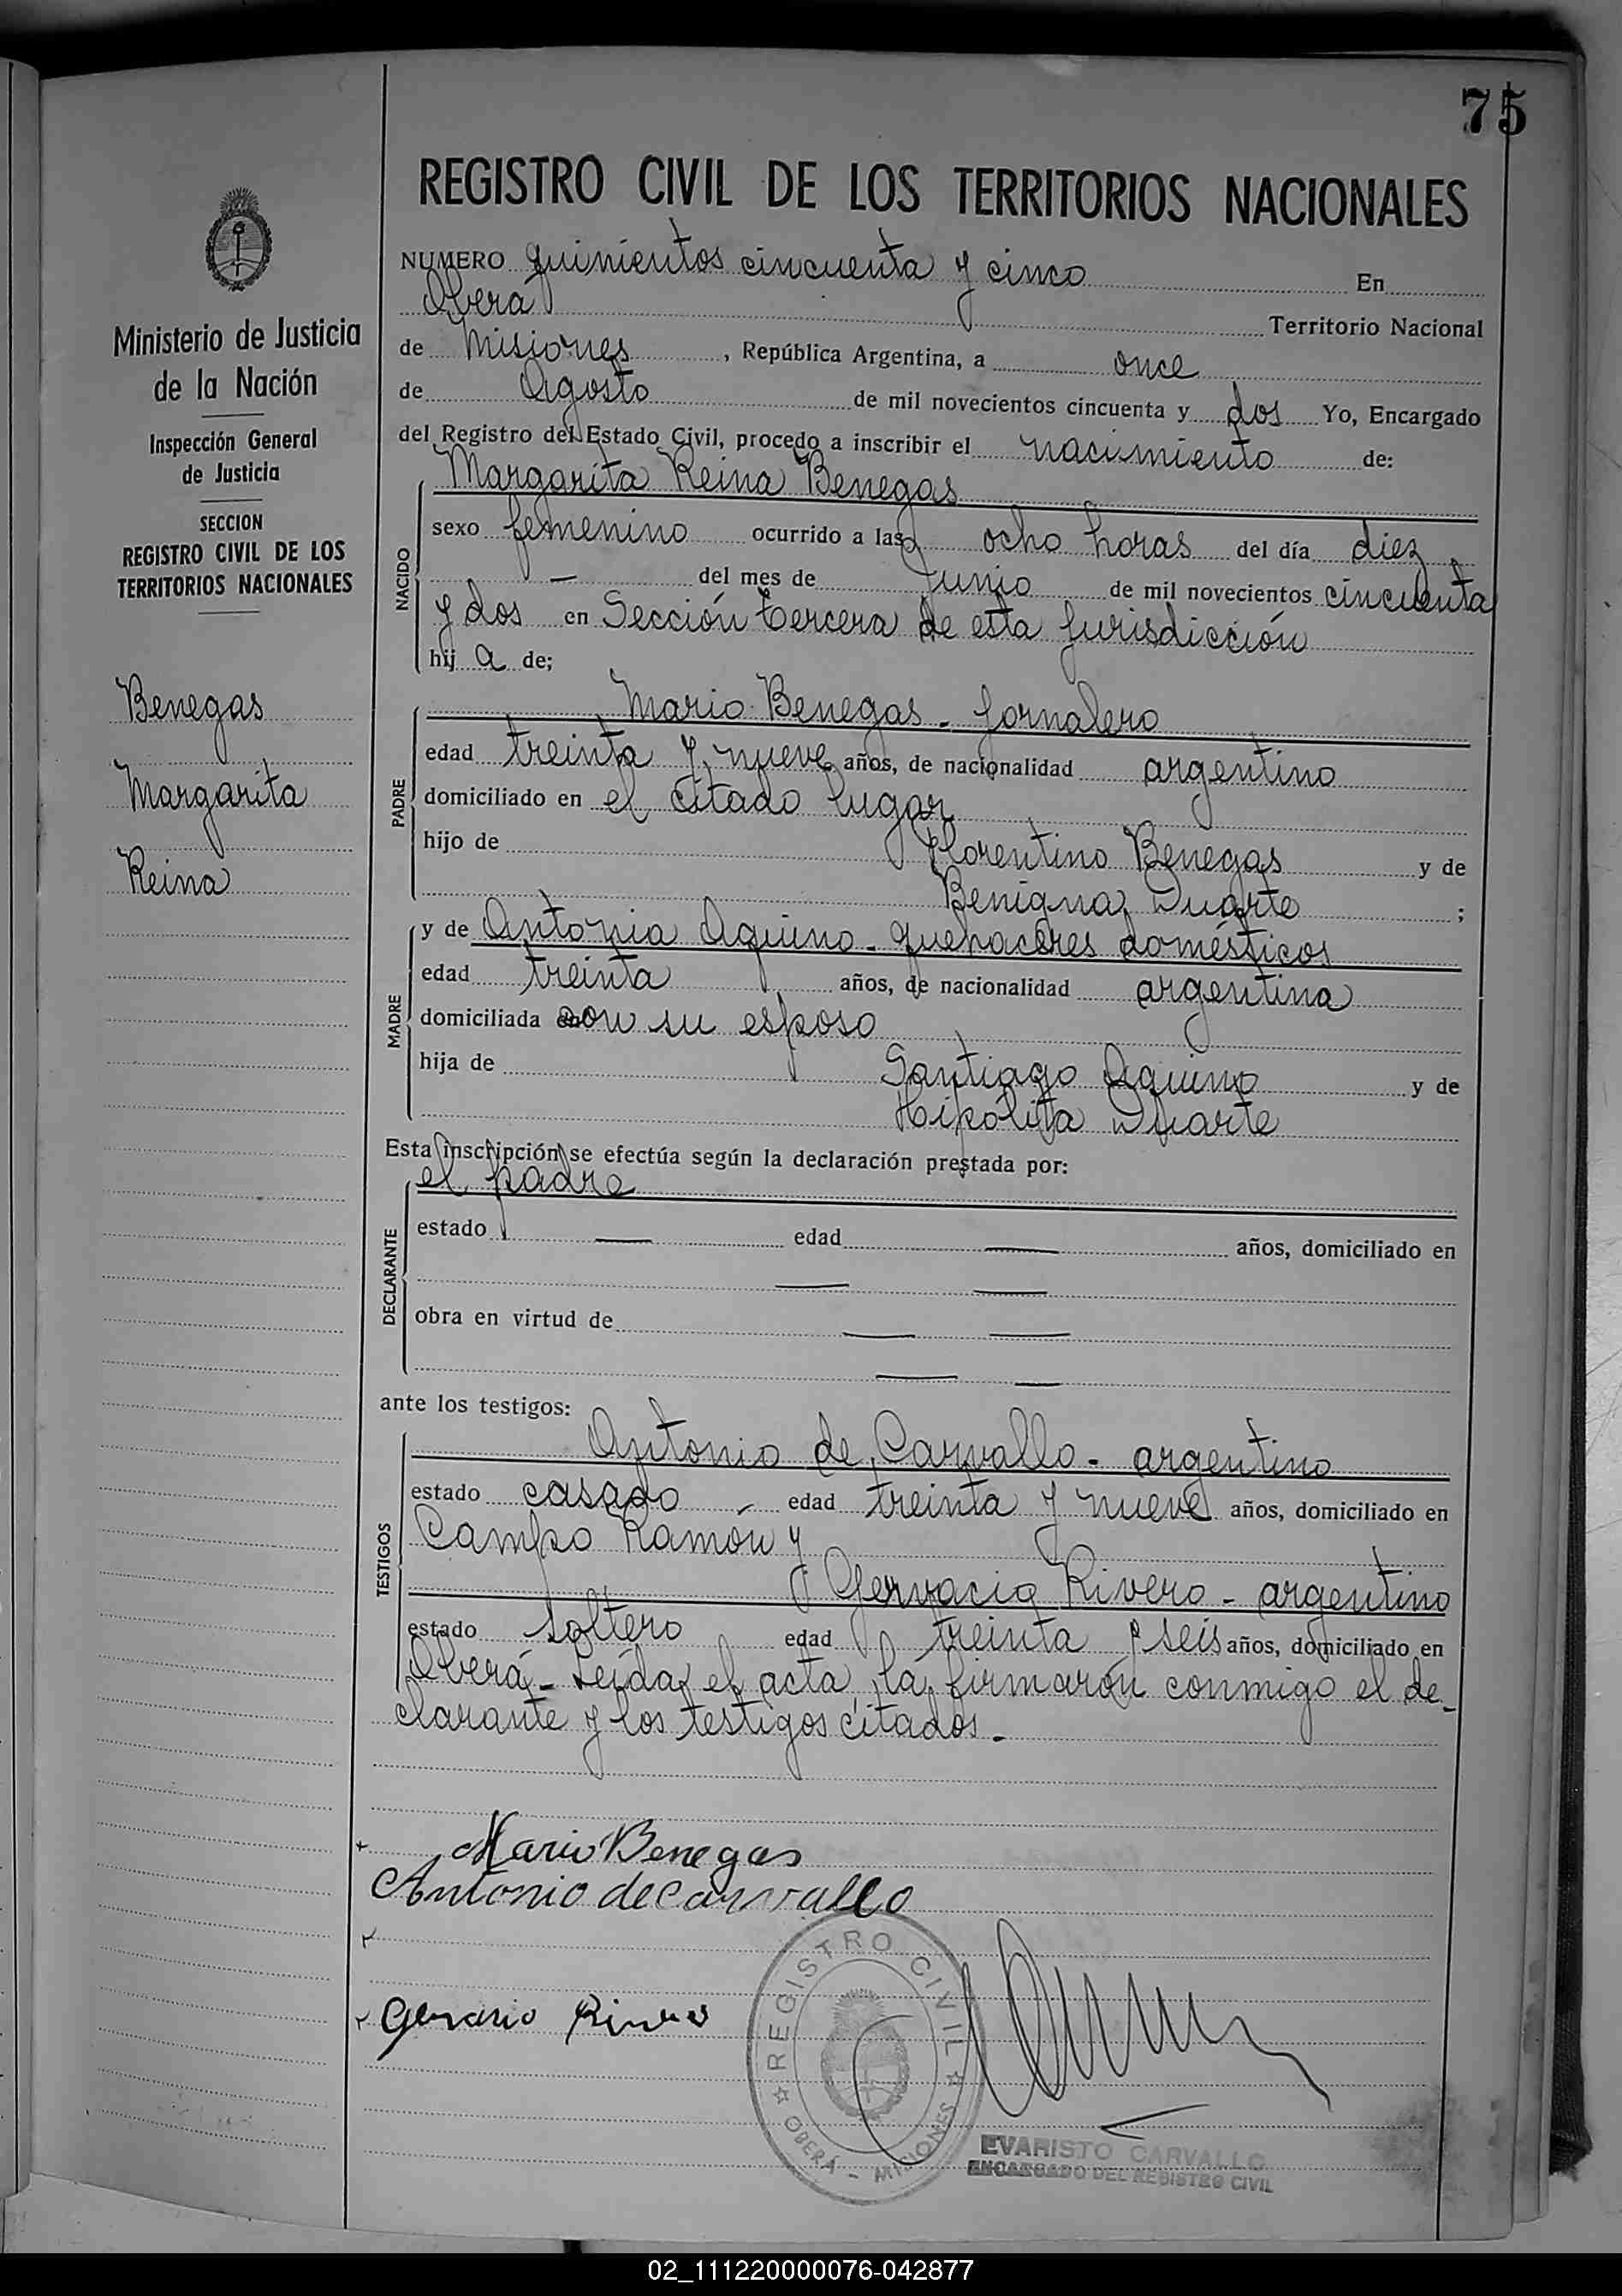 75
REGISTRO CIVIL DE LOS TERRITORIOS NACIONALES
Ministerio de Justicia
de la Nación
Inspección General
de Justicia
SECCION
REGISTRO CIVIL DE LOS
TERRITORIOS NACIONALES
Benegas
Margarita
Reina
NUMERO quinientos cincuenta y cinco En
Oberá Territorio Nacional
de Misiones, República Argentina, a once
de Agosto de mil novecientos cincuenta y dos Yo, Encargado
del Registro del Estado Civil, procedo a inscribir el nacimiento de:
Margarita Reina Benegas
NACIDO
sexo femenino ocurrido a las ocho horas del día diez
— del mes de Junio de mil novecientos cincuenta
y dos en Sección tercera de esta jurisdicción
hij a de;
Mario Benegas - jornalero
PADRE
edad treinta y nueve años, de nacionalidad argentino
domiciliado en el citado lugar
hijo de Florentino Benegas y de
Benigna Duarte ;
y de Antonia Aquino - quehaceres domésticos
MADRE
edad treinta años, de nacionalidad argentina
domiciliada con su esposo
hija de Santiago Aquino y de
Hipólita Duarte
Esta inscripción se efectúa según la declaración prestada por:
el padre
DECLARANTE
estado — edad — años, domiciliado en
— —
obra en virtud de — —
— —
ante los testigos:
Antonio de Carvallo - argentino
TESTIGOS
estado casado - edad treinta y nueve años, domiciliado en
Campo Ramón y
Gervacio Rivero - argentino
estado soltero edad treinta y seis años, domiciliado en
Oberá - Leída el acta, la firmaron conmigo el de-
clarante y los testigos citados.-
Mario Benegas
Antonio de Carvallo
REGISTRO CIVIL
OBERÁ - MISIONES
EVARISTO CARVALLO
ENCARGADO DEL REGISTRO CIVIL
02_111220000076-042877